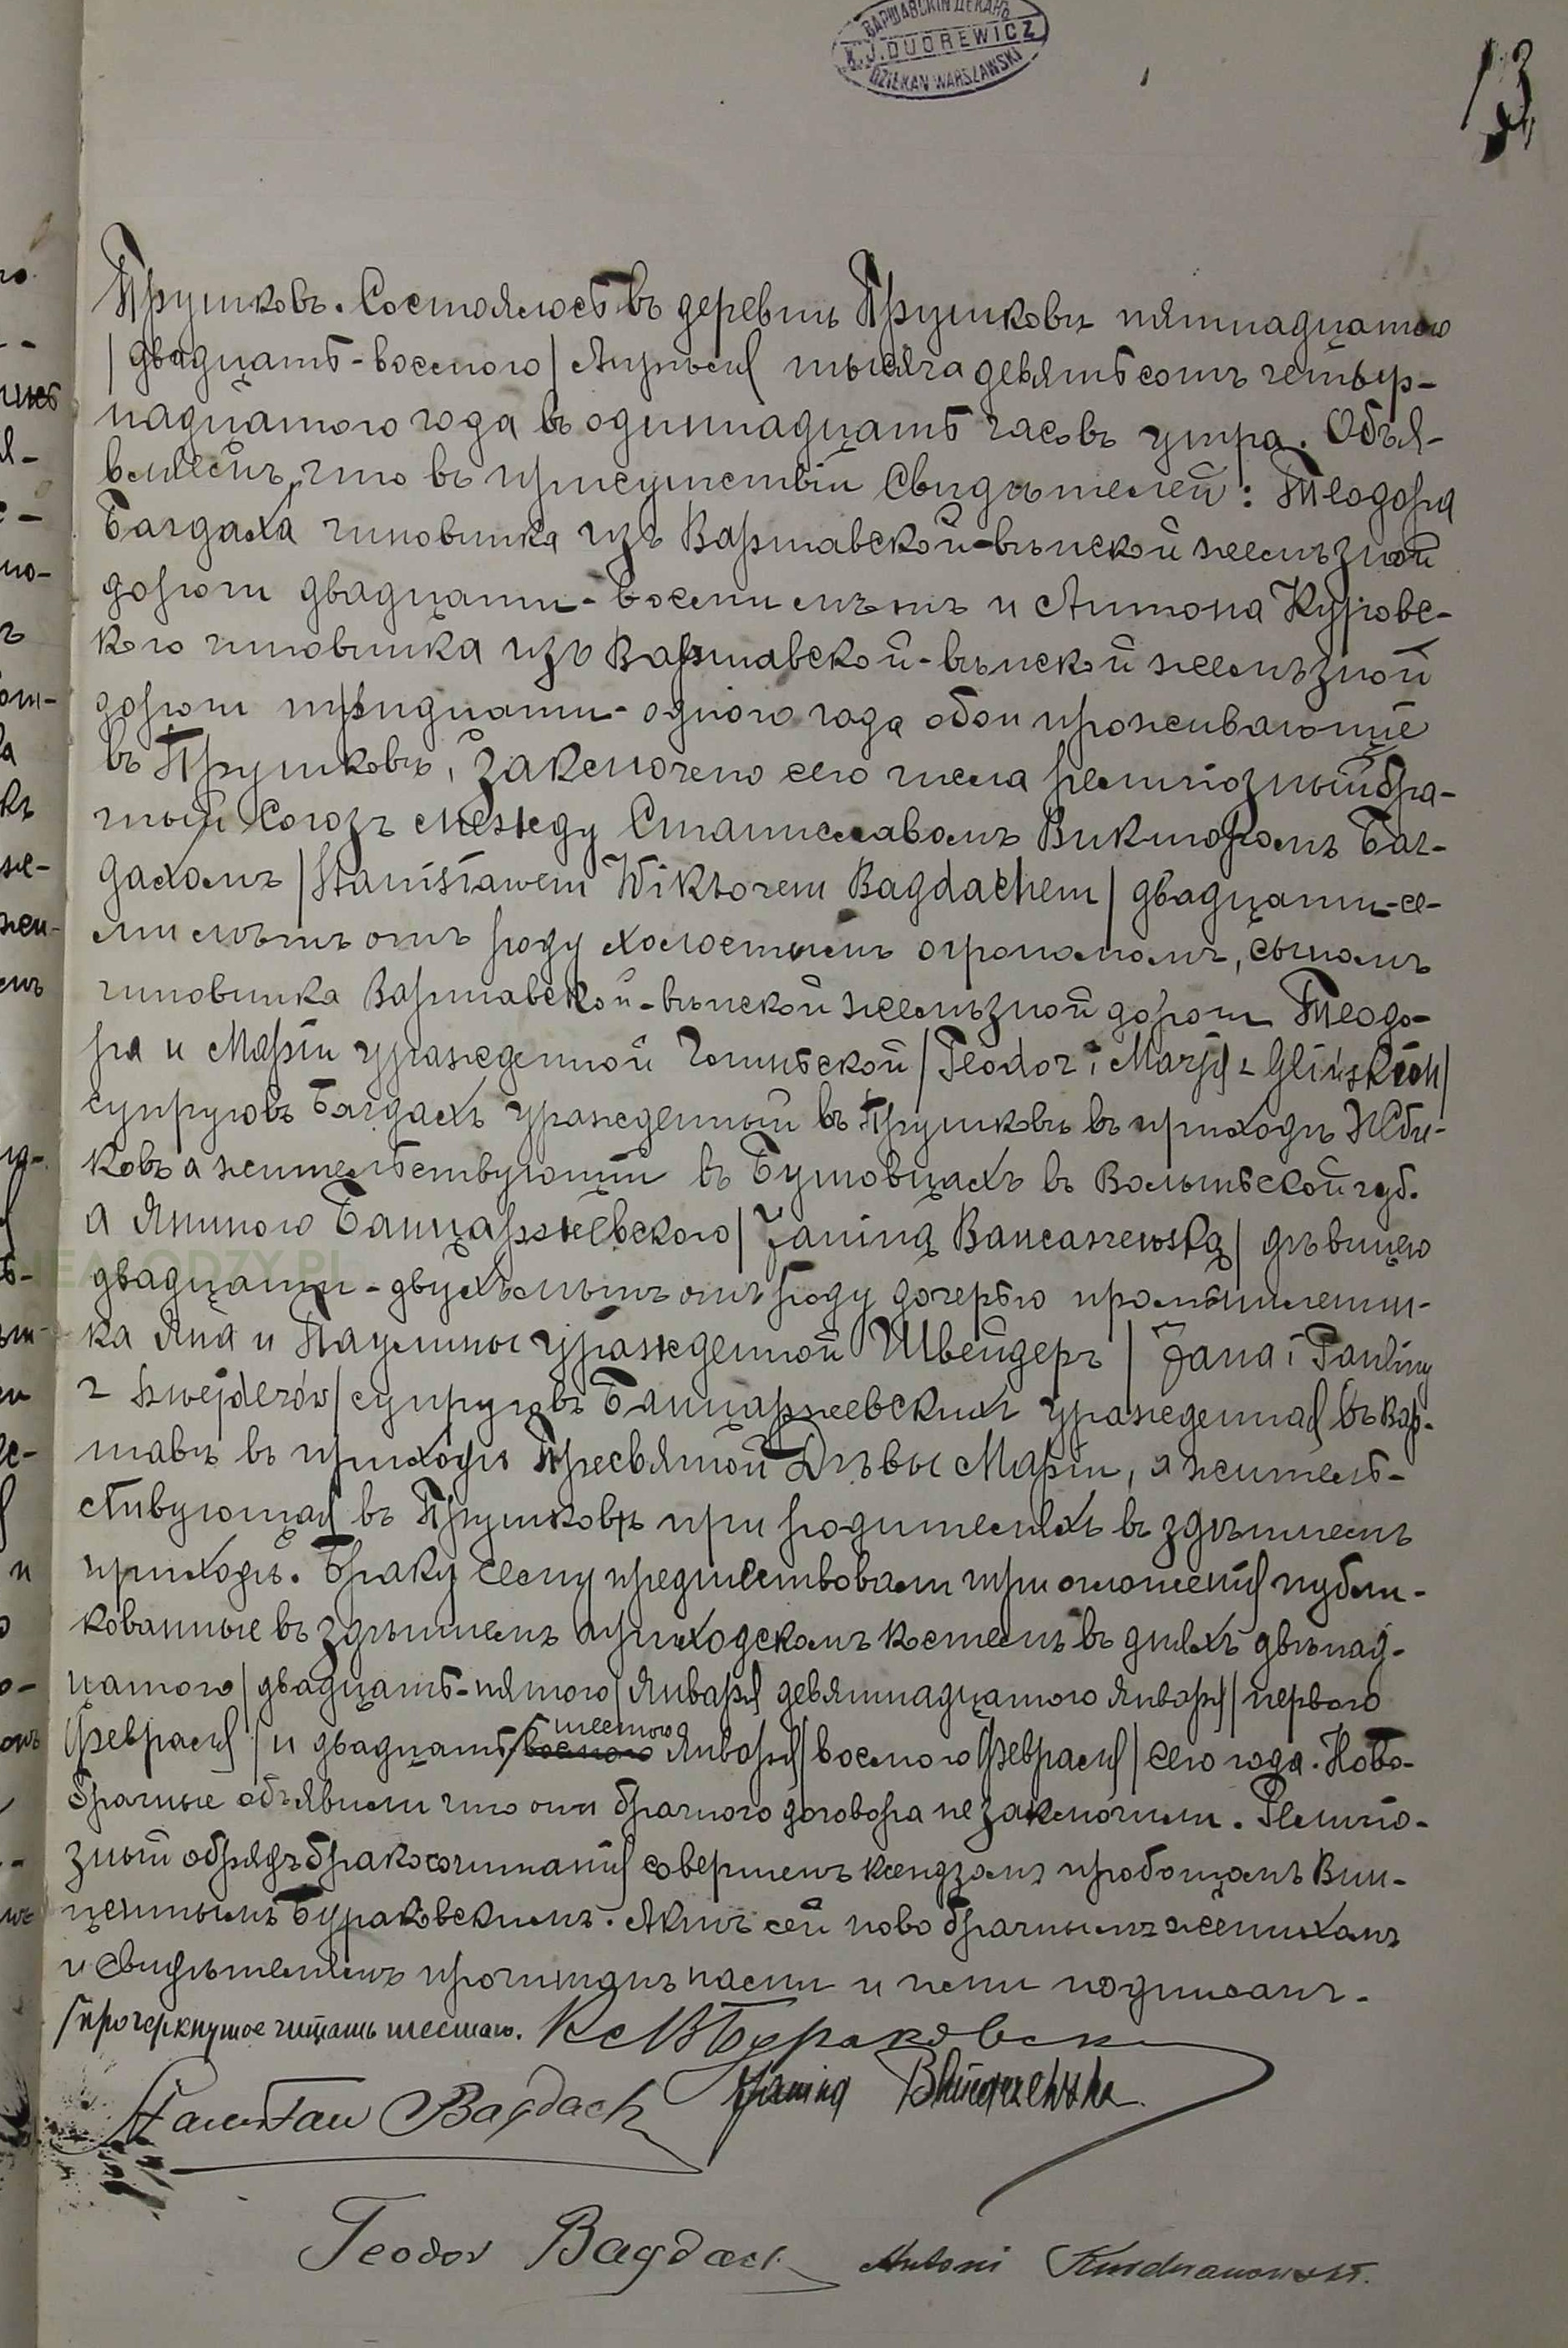 ВАРШАВСКІЙ ДЕКАНЪ
X.J.DUDREWICZ
DZIEKAN WARSZAWSKI
13
Прушковъ. Состоялось въ деревнѣ Прушковѣ пятнадцатого
/двадцать-восьмого/ Апрѣля тысяча девятьсотъ четыр-
надцатого года въ одиннадцать часовъ утра. Объя-
вляемъ, что въ присутствіи свидѣтелей: Теодора
Багдаха чиновника изъ Варшавской-вѣнской желѣзной
дороги двадцати-восьми лѣтъ и Антона
кого чиновника изъ Варшавской-вѣнской желѣзной
дороги тридцати-одного года обои проживающіе
въ Прушковѣ, заключено сего числа религіозный бра-
чный союзъ между Станиславомъ Викторомъ Баг-
дахомъ /Stanisławem Wiktorem Bagdachem/ двадцати-се-
ми лѣтъ отъ роду холостымъ огрономомъ, сыномъ
чиновника Варшавской-вѣнской желѣзной дороги Теодо-
ра и Маріи урожденной Глиньской /Teodor i Maryi z Glińskich/
супруговъ Багдахъ урожденный въ Прушковѣ въ приходѣ Жби-
ковъ а жительствующій въ Бутовцахъ въ Волыньской губ.
а Яниною Банцаржевского /Janiną Bancarzewską/ дѣвицею
двадцати-двухъ лѣтъ отъ роду дочерью промышленни-
ка Яна и Паулины урожденной Швейдеръ / Jana i Pauliny
z Szwejderów/ супруговъ Банцаржевскихъ урожденная въ Вар-
шавѣ въ приходѣ Пресвятой Дѣвы Маріи, а житель-
ствующая въ Прушковѣ при родителяхъ въ здѣшнемъ
приходѣ. Браку сему предшествовали три оглошенія публи-
кованные въ здѣшнемъ приходскомъ костелѣ въ дняхъ двѣнад-
цатого /двадцать-пятого/ Января девятнадцатого Января /первого
Февраля/ и двадцать/восмого шестого Января /восмого Февраля/ сего года. Ново-
брачные объявили что они брачного договора не заключили. Религіо-
зный обрядъ бракосочитанія совершенъ ксендзомъ пробощомъ Вин-
центымъ Бураковскимъ. Актъ сей новобрачнымъ женихамъ
и свидѣтелямъ прочитанъ нами и ними подписанъ.
/прочеркнутое читать шестого. Кс В Бураковски
Stanisław Bagdach Janina Bancarzewska
Teodor Bagdach Antoni